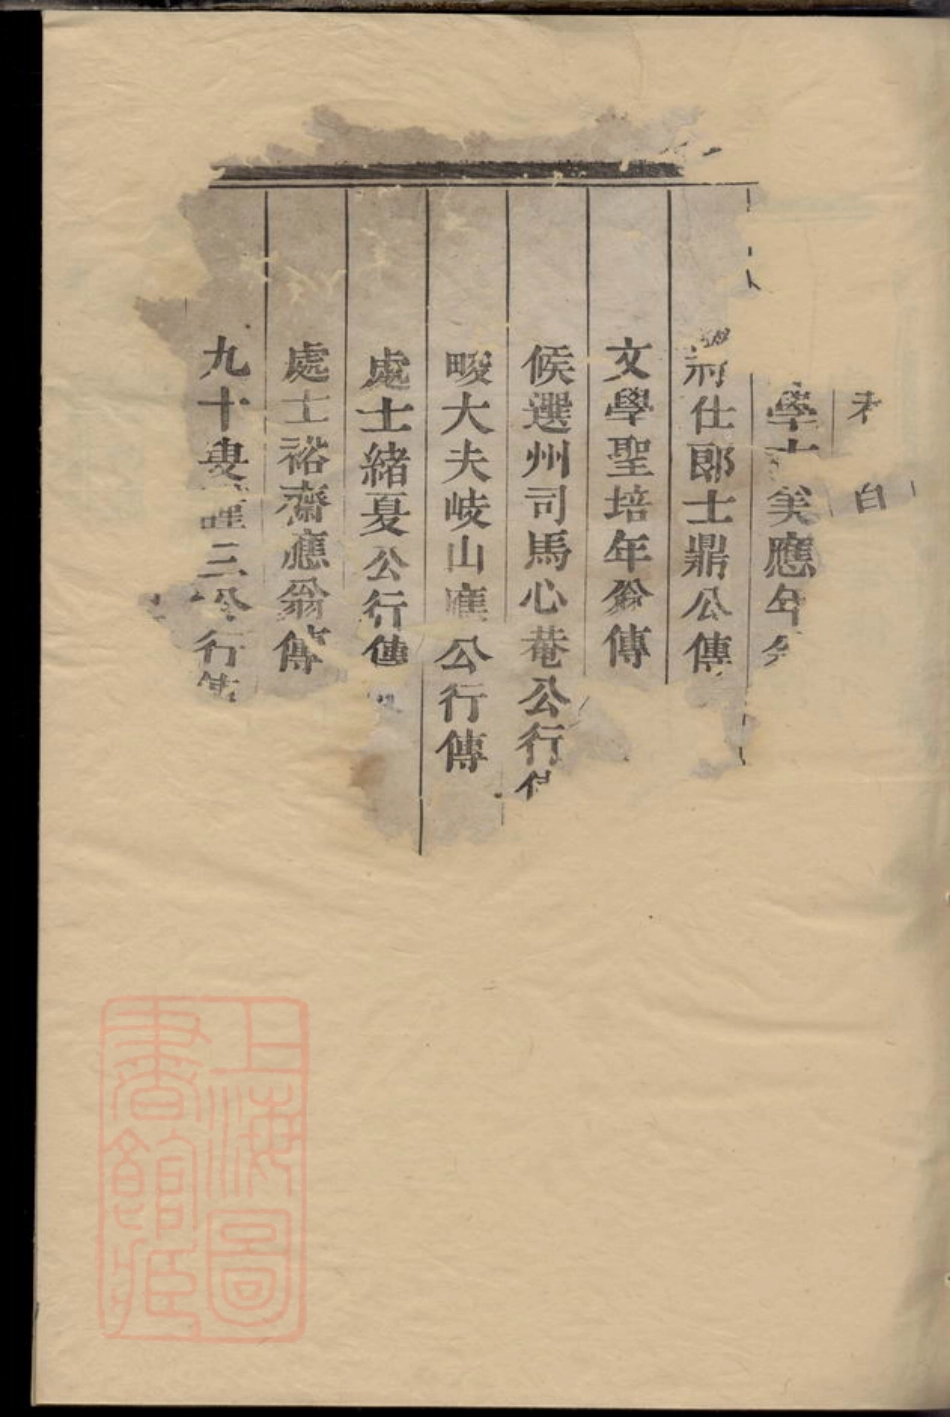 自
學
美應年
仕郎士鼎公傳
文學聖培年翁傳
候選州司馬心菴公行
畯大夫岐山應公行傳
處士緒夏公行傳
處士裕齋應翁傳
九十叟 三公行
上海圖
書館藏